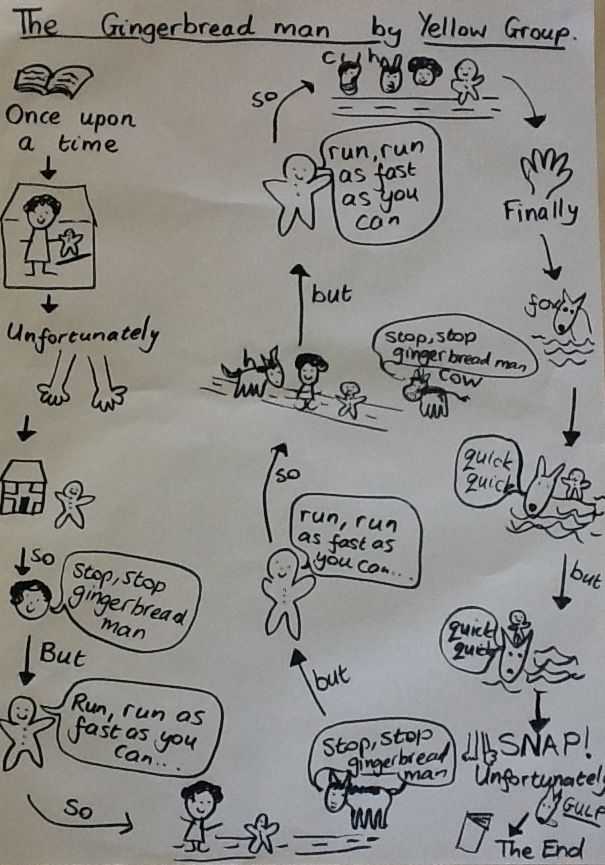 The Gingerbread man by Yellow Group.
Once upon
a time
Unfortunately
so
Stop, stop
gingerbread
man
But
Run, run as
fast as you
can...
So
Stop, stop
gingerbread
man
but
run, run
as fast as
you can...
so
h
stop, stop
gingerbread man
cow
but
run, run
as fast
as you
can
so
c
h
Finally
fox
quick
quick
but
quick
quick
SNAP!
Unfortunately
GULP
The End